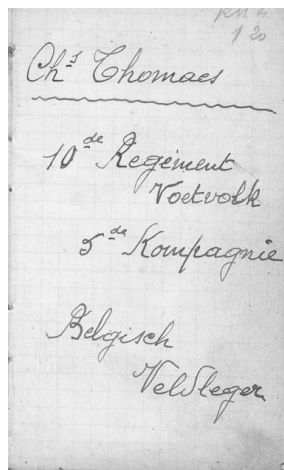 Chs Thomaes
10de Regement
Voetvolk
5de Kompagnie
Belgisch
Veldleger